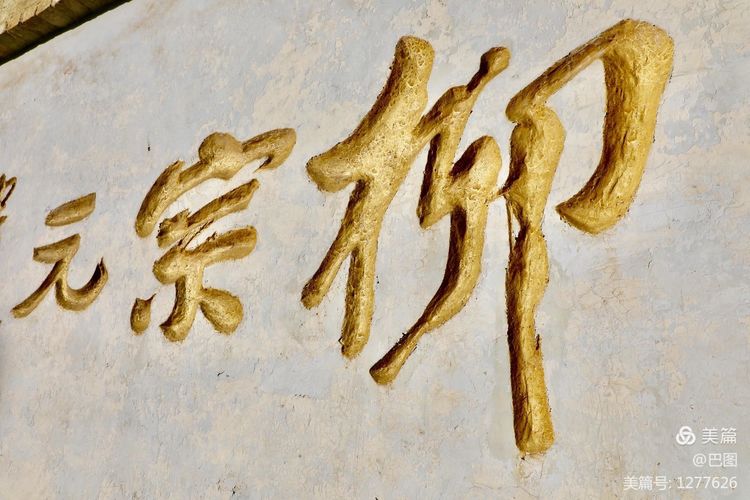 柳宗元
美篇
@巴图
美篇号: 1277626